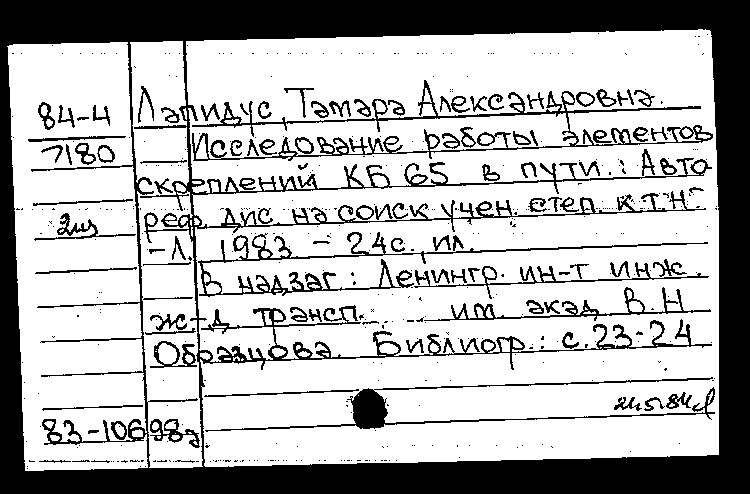 84-4 Лапидус, Тамара Александровна.
7180 Исследование работы элементов
скреплений КБ 65 в пути.: Авто
2из реф. дис. на соиск учен. степ. к.т.н-
-Л. 1983 - 24с., ил.
В надзаг: Ленингр. ин-т инж.
ж.-д трансп. им. акад В.Н
Образцова. Библиогр.: с.23-24
83-10698д